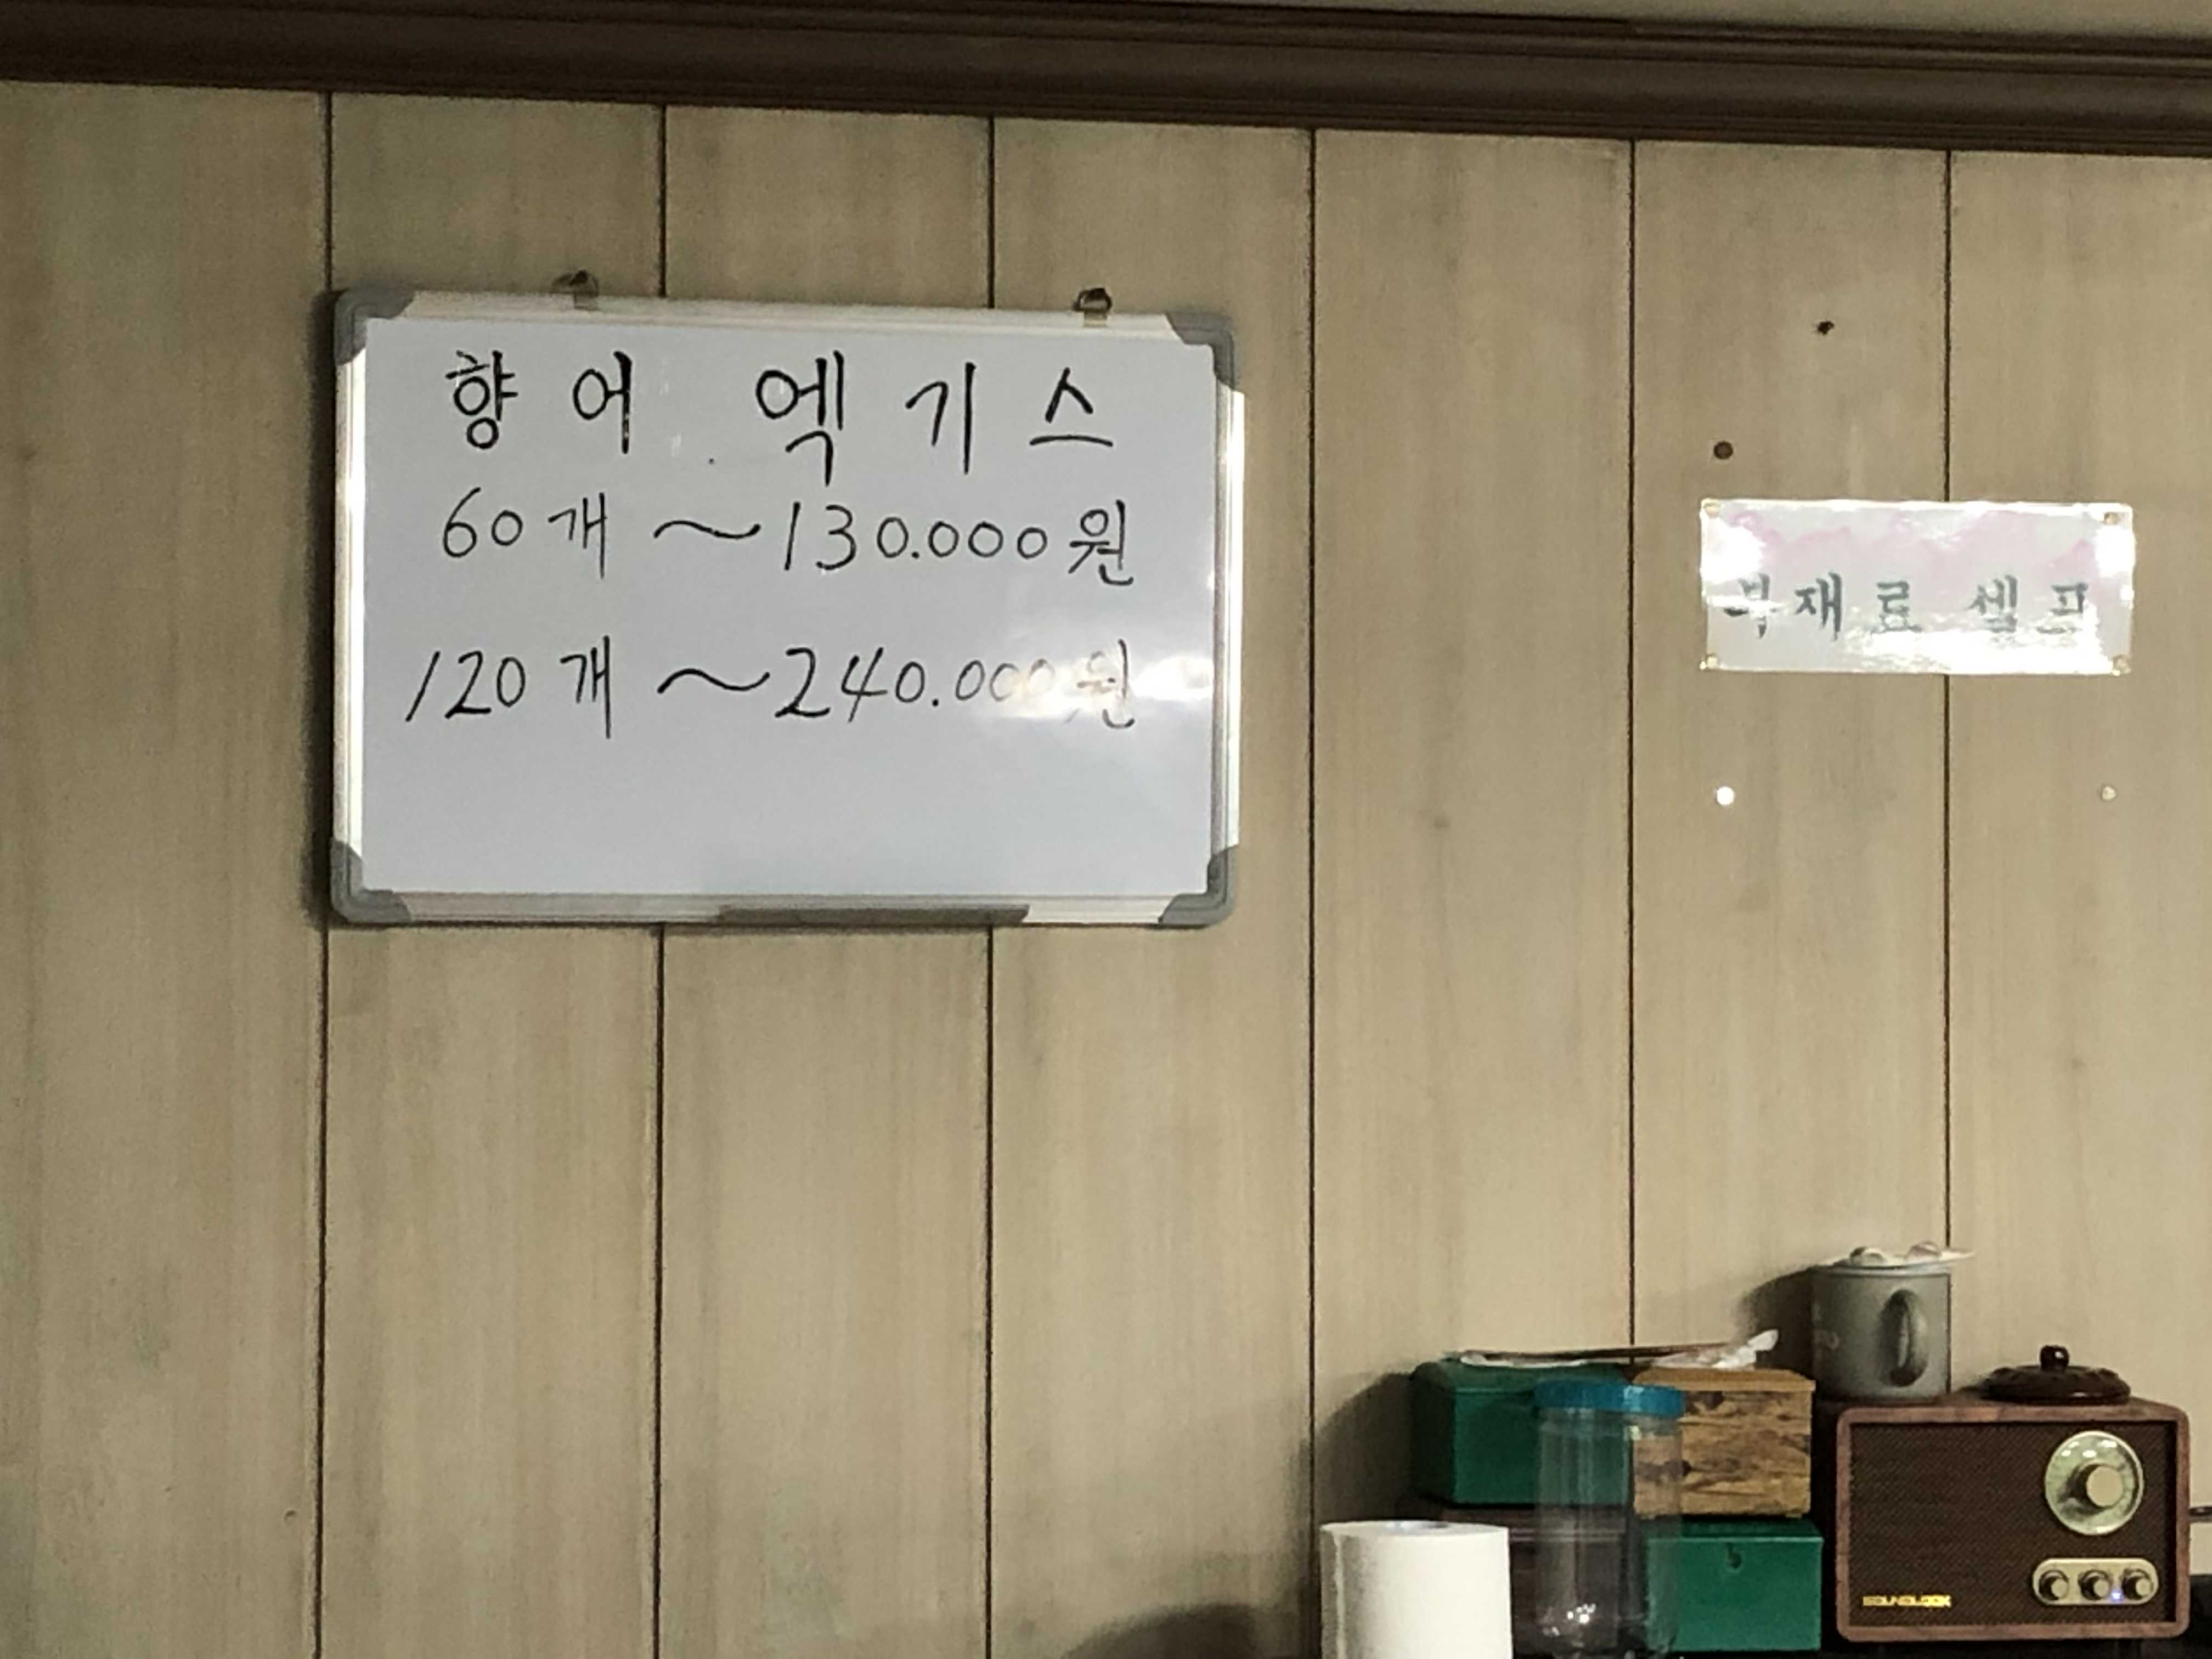 향어 엑기스
60개 ~ 130.000원
120개 ~ 240.000원
부재료 셀프
SOUNDLOOK